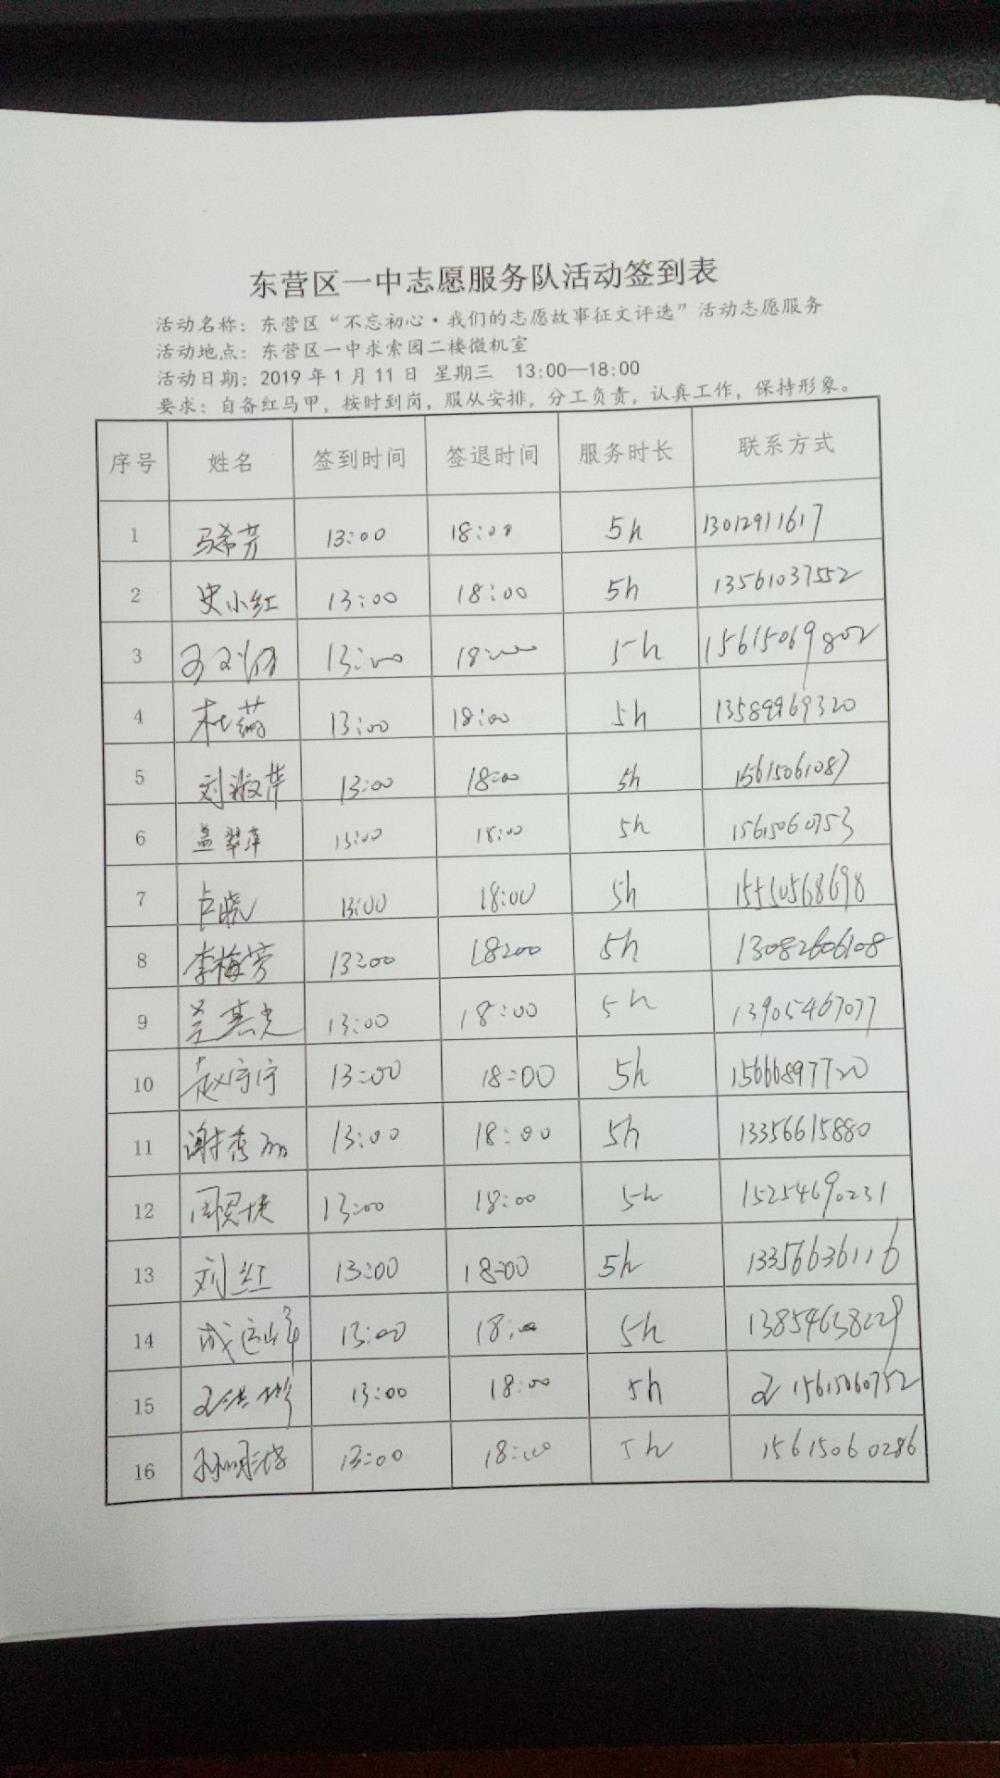 东营区一中志愿服务队活动签到表
活动名称：东营区“不忘初心·我们的志愿故事征文评选”活动志愿服务
活动地点：东营区一中求索园二楼微机室
活动日期：2019年1月11日 星期三 13:00—18:00
要求：自备红马甲，按时到岗，服从安排，分工负责，认真工作，保持形象。
序号 姓名 签到时间 签退时间 服务时长 联系方式
1 马希芳 13:00 18:00 5h 13012911617
2 史小红 13:00 18:00 5h 13561037552
3 13:00 18:00 5h 15615069802
4 杜蕊 13:00 18:00 5h 13589969320
5 刘淑萍 13:00 18:00 5h 15615061087
6 盖翠萍 13:00 18:00 5h 15615060753
7 卢晓 13:00 18:00 5h 15550568698
8 李梅芳 13:00 18:00 5h 13082606108
9 13:00 18:00 5h 13905467077
10 赵宁宁 13:00 18:00 5h 15666897720
11 谢秀丽 13:00 18:00 5h 13356615880
12 13:00 18:00 5h 15254690231
13 刘红 13:00 18:00 5h 13356636116
14 13:00 18:00 5h 13854638229
15 13:00 18:00 5h 15615060752
16 13:00 18:00 5h 15615060286